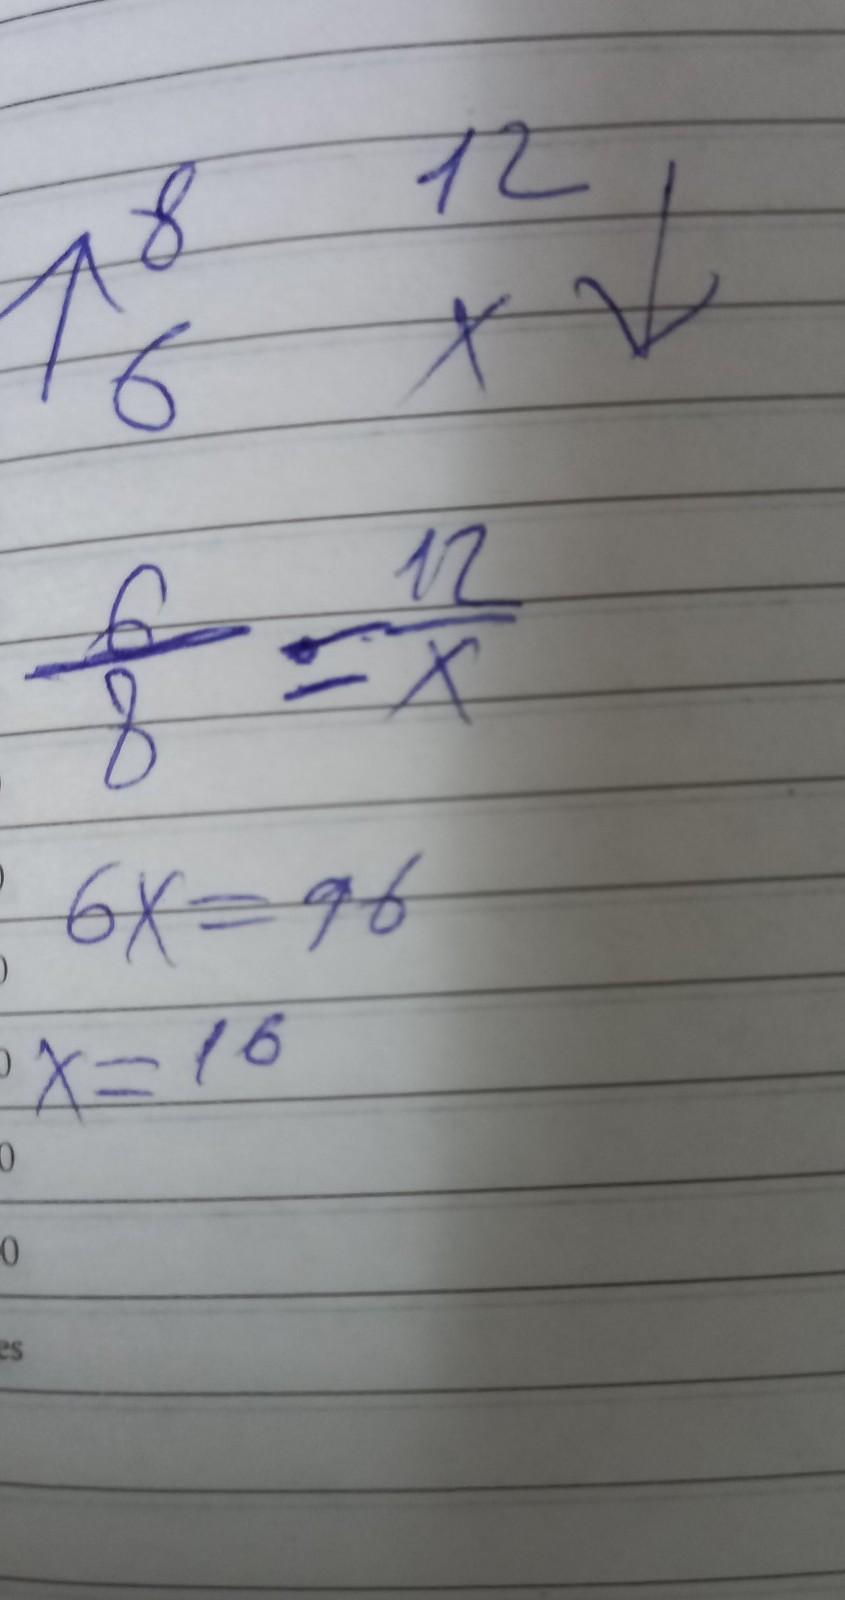 ↑ 8 12 ↓
6 x
6/8 = 12/x
6x = 96
x = 16
0
0
es